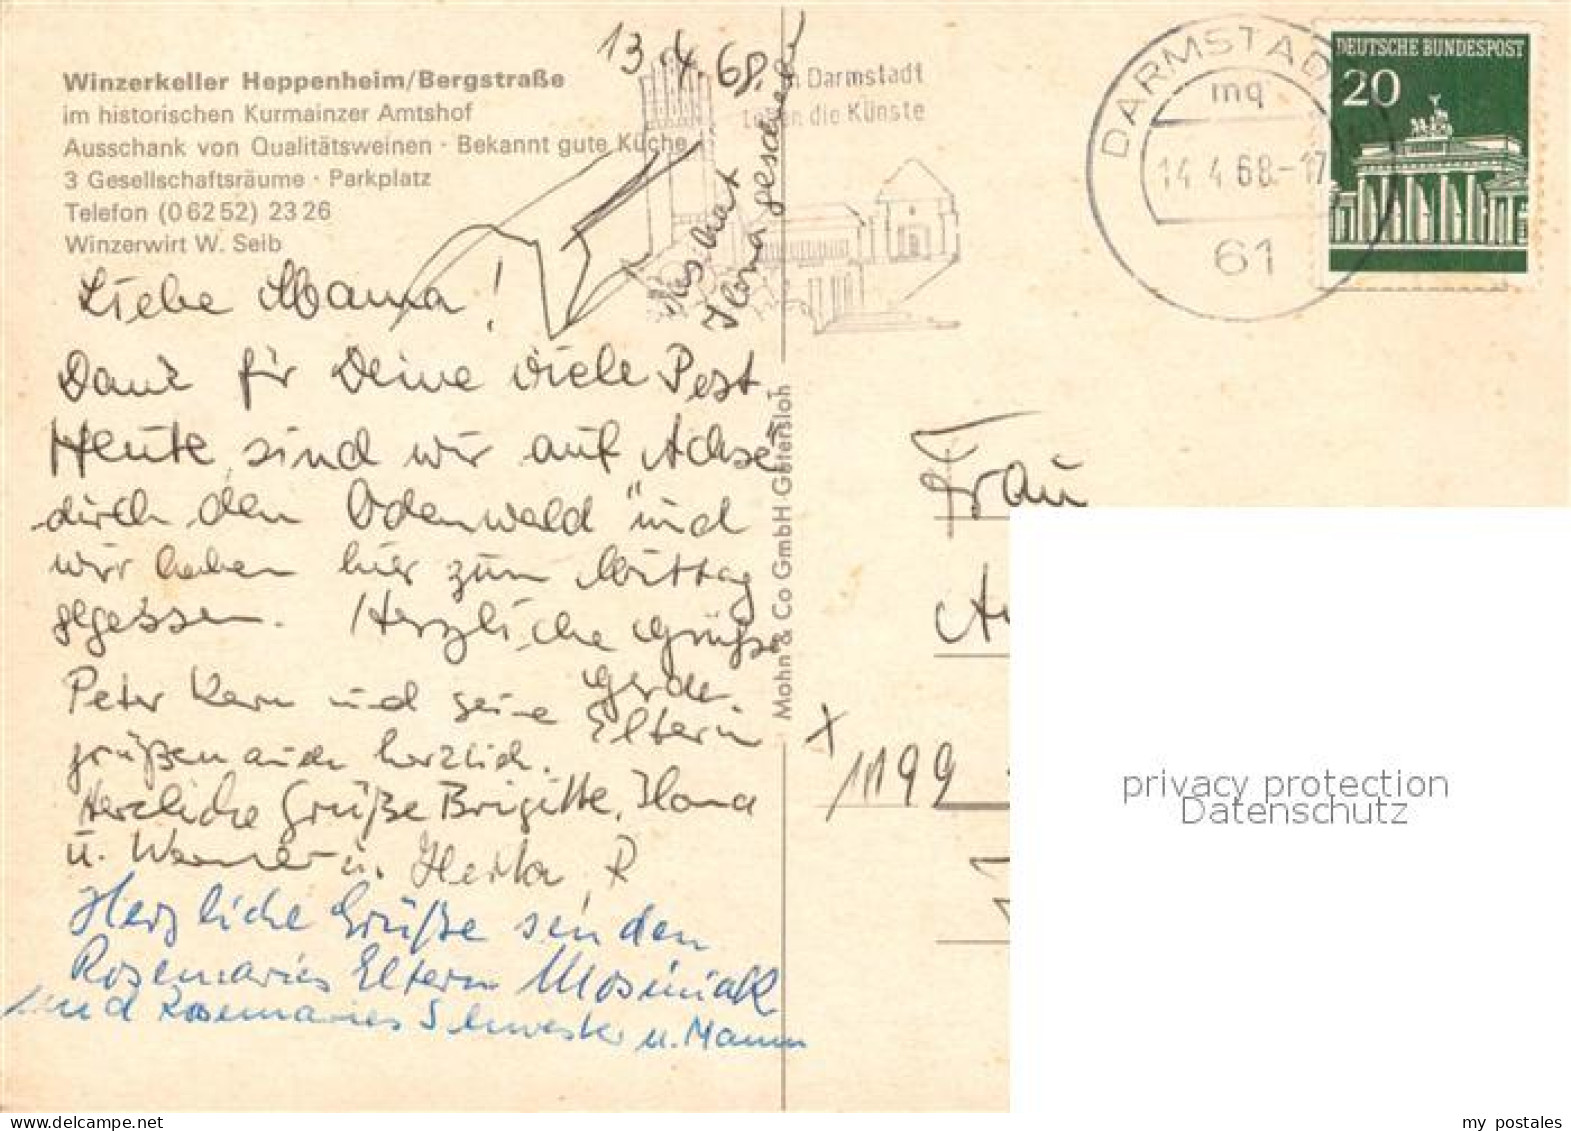 Winzerkeller Heppenheim/Bergstraße
im historischen Kurmainzer Amtshof
Ausschank von Qualitätsweinen · Bekannt gute Küche
3 Gesellschaftsräume · Parkplatz
Telefon (0 62 52) 23 26
Winzerwirt W. Seib
13.4.68.
Liebe Mama!
Dank für Deine viele Post
Heute sind wir auf Achse
durch den Odenwald und
wir haben hier zum Mittag
gegessen. Herzliche Grüße
Gerda.
Peter Kern und seine Eltern
grüßen auch herzlich.
Herzliche Grüße Brigitte, Ilona
u. Werner u. Herta R
Herzliche Grüße senden
Rosemaries Eltern Mosiniak
und Rosemaries Schwester u. Mann
Das hat
Ilona geschrieben
Mohn & Co GmbH Gütersloh
Darmstadt
die Künste
DARMSTADT
mq
14.4.68.-17
61
DEUTSCHE BUNDESPOST
20
Frau
X
1199
privacy protection
Datenschutz
my postales